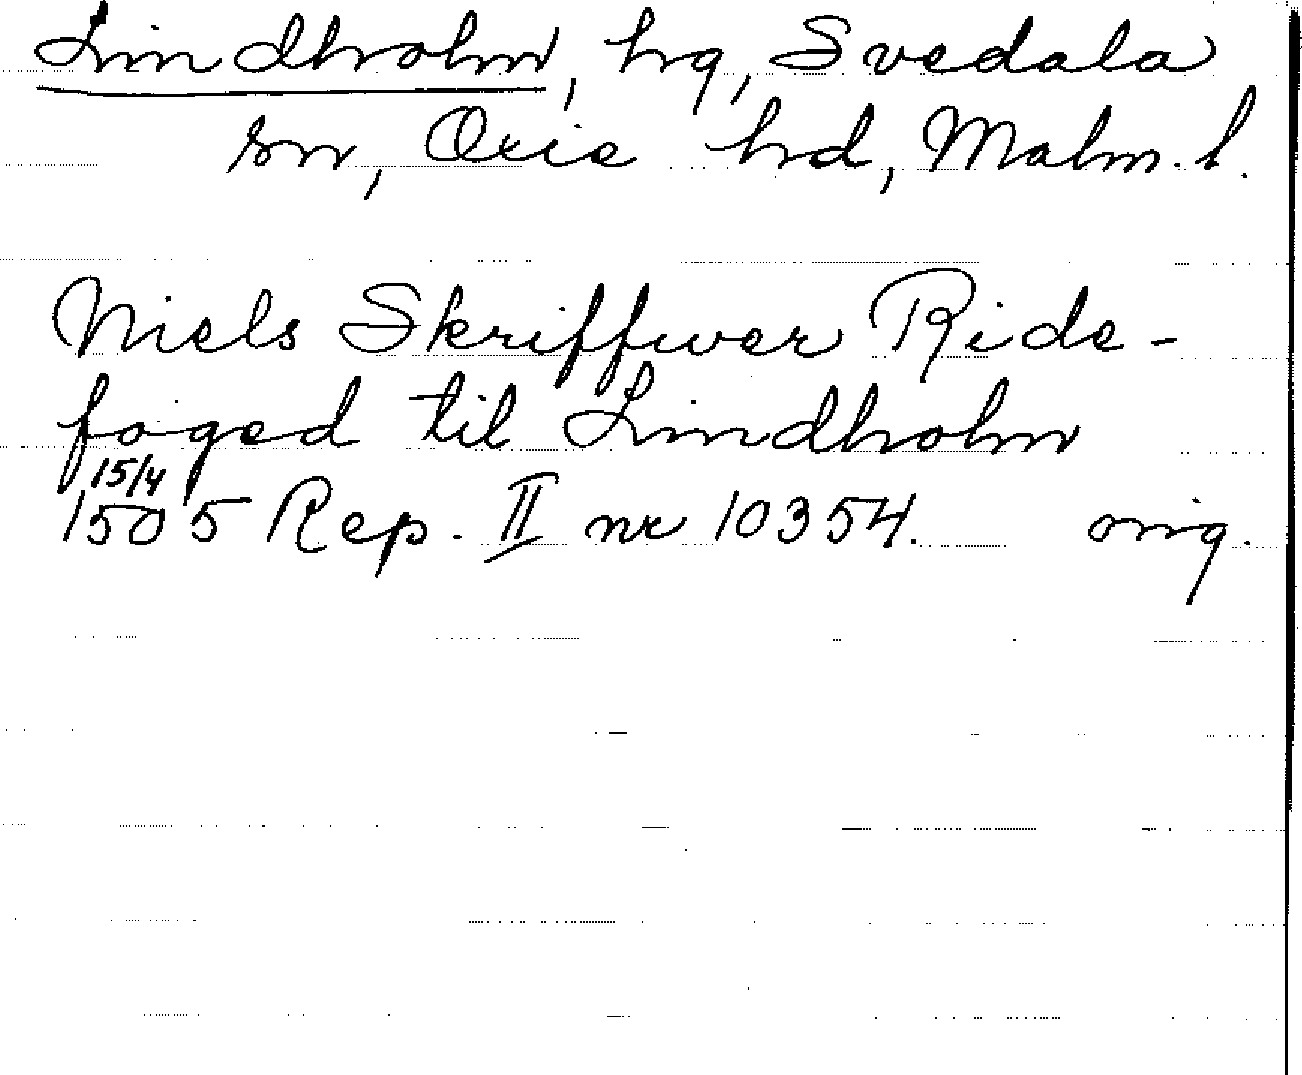 Lindholm, hg, Svedala
sn, Oxie hd, Malm. l.
Niels Skriffwer Ride-
foged til Lindholm
15/4
1505 Rep. II nr 10354. orig.